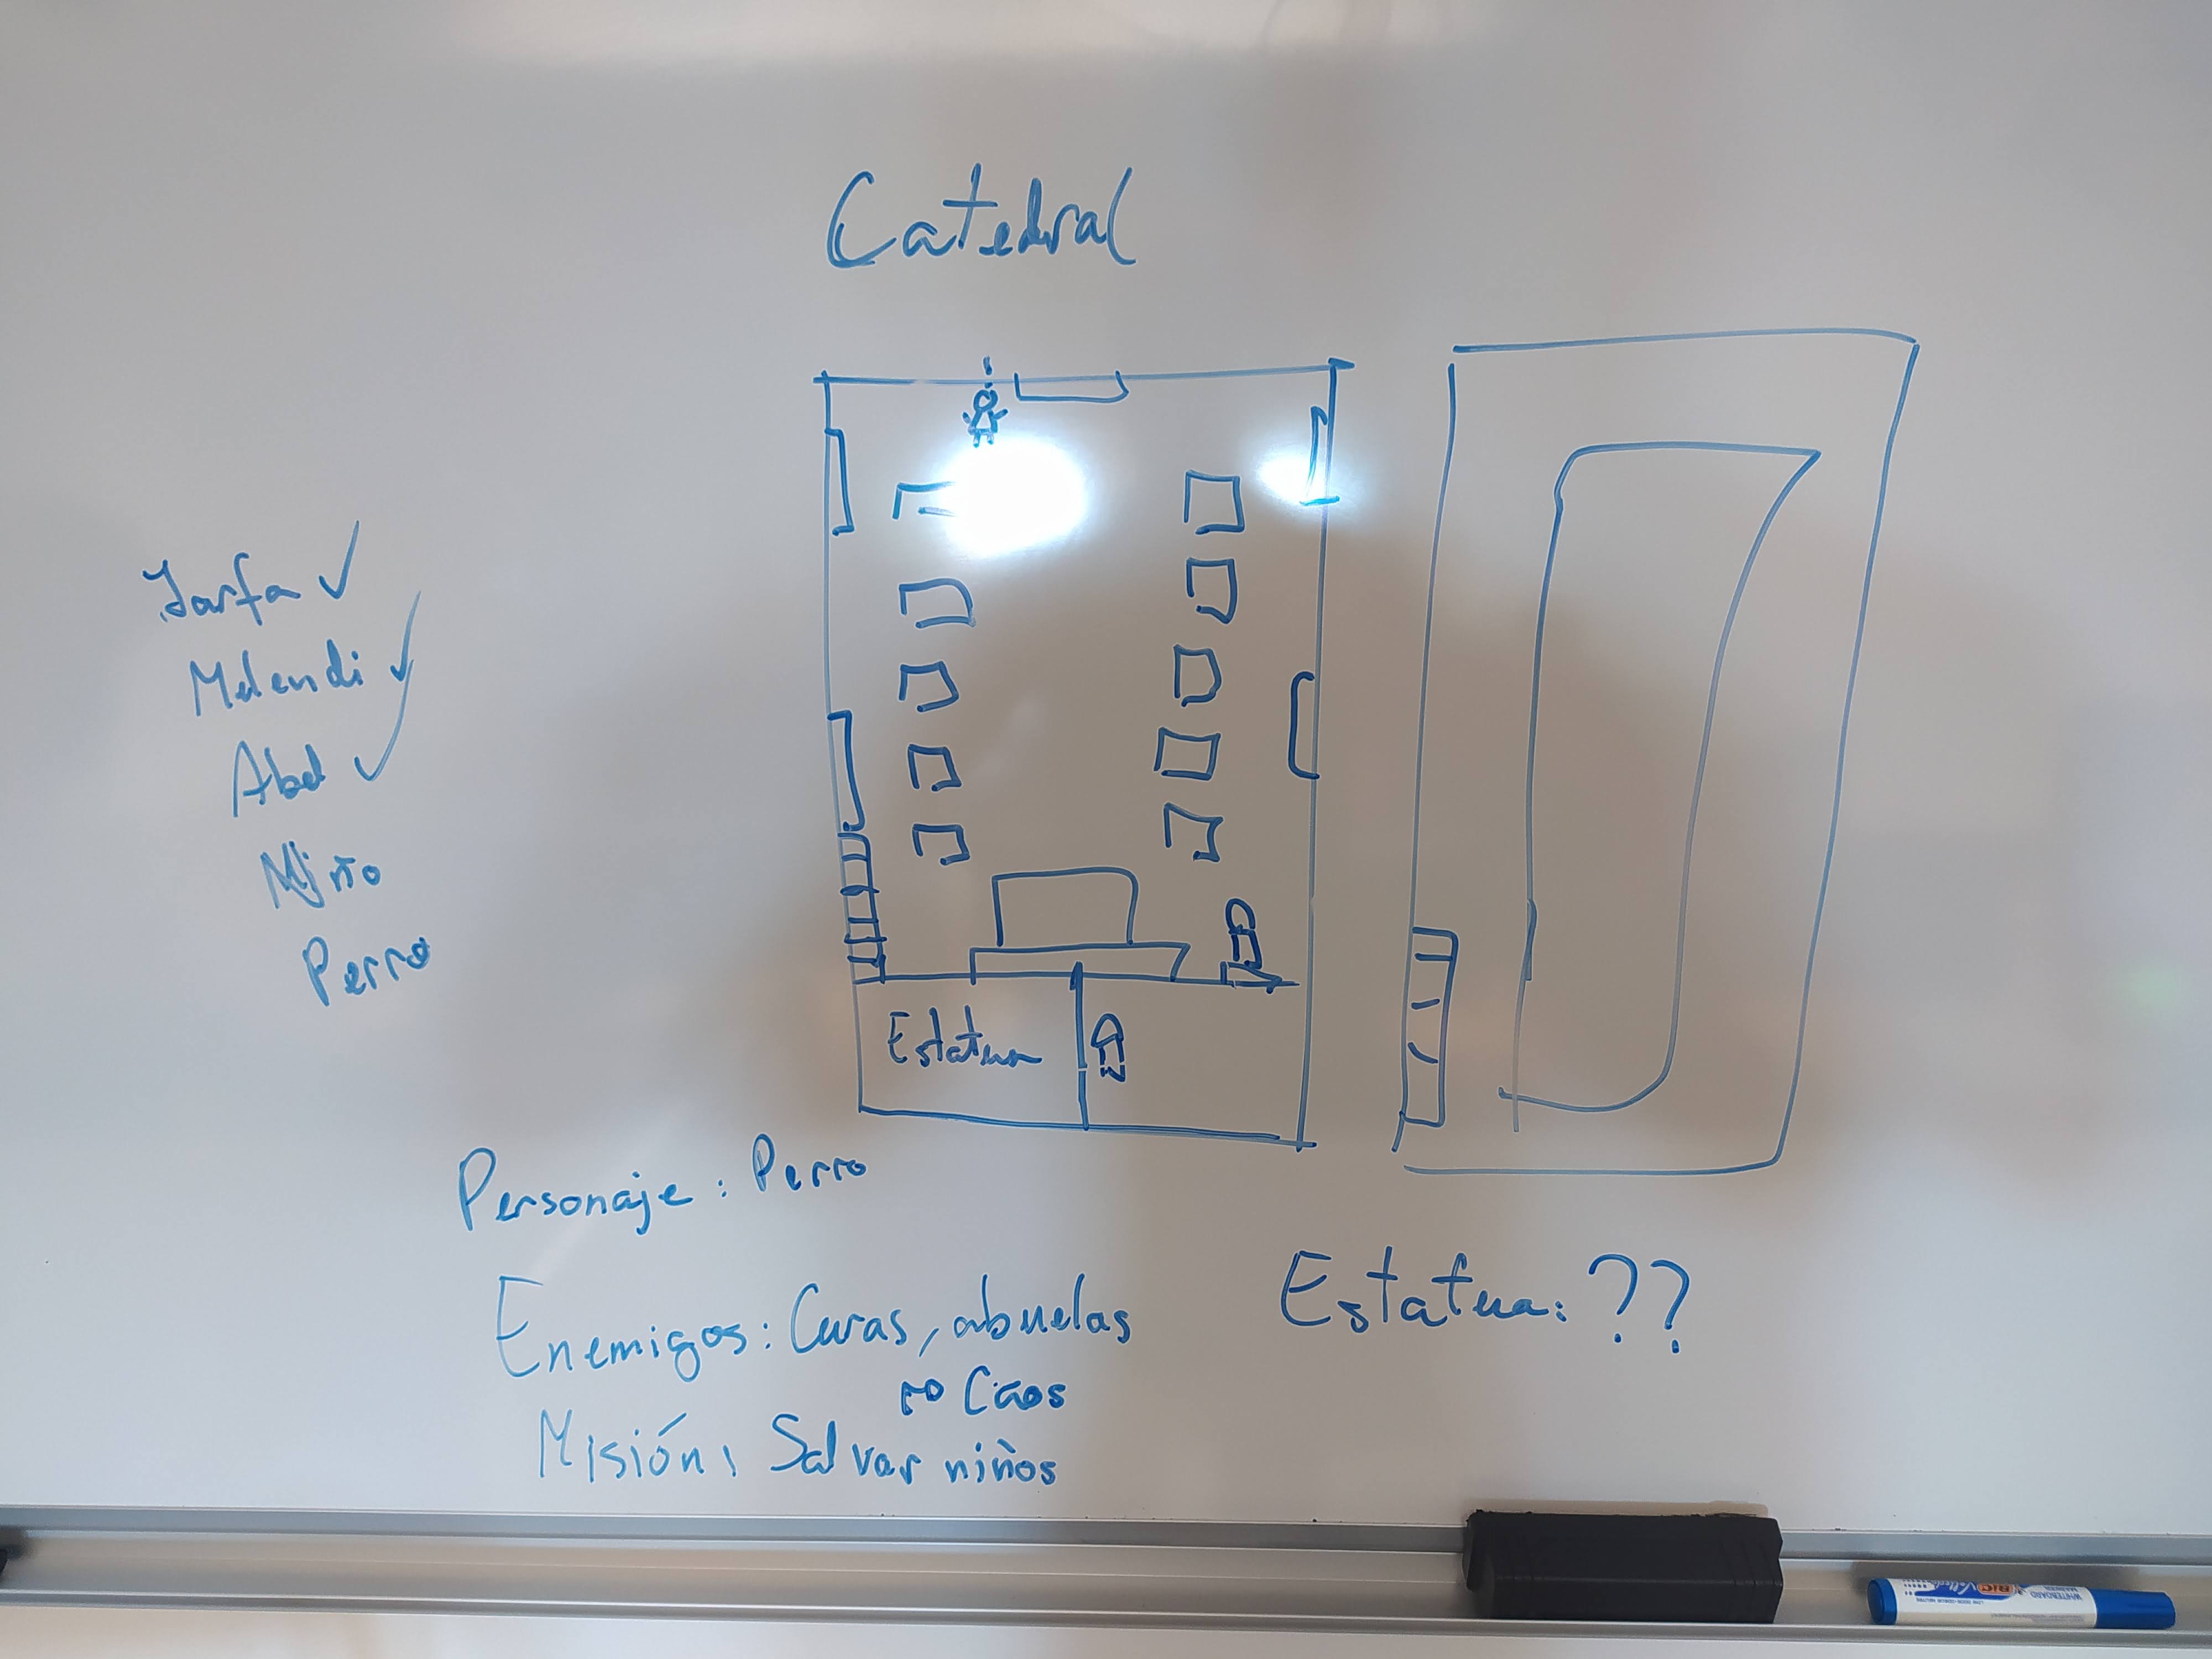 Catedral
Jarfa ✓
Melendi ✓
Abel ✓
Niño
Perro
Estatua
Personaje: Perro
Enemigos: Curas, abuelas
Caos
Misión: Salvar niños
Estatua: ??
BIC
WHITEBOARD
MARKER